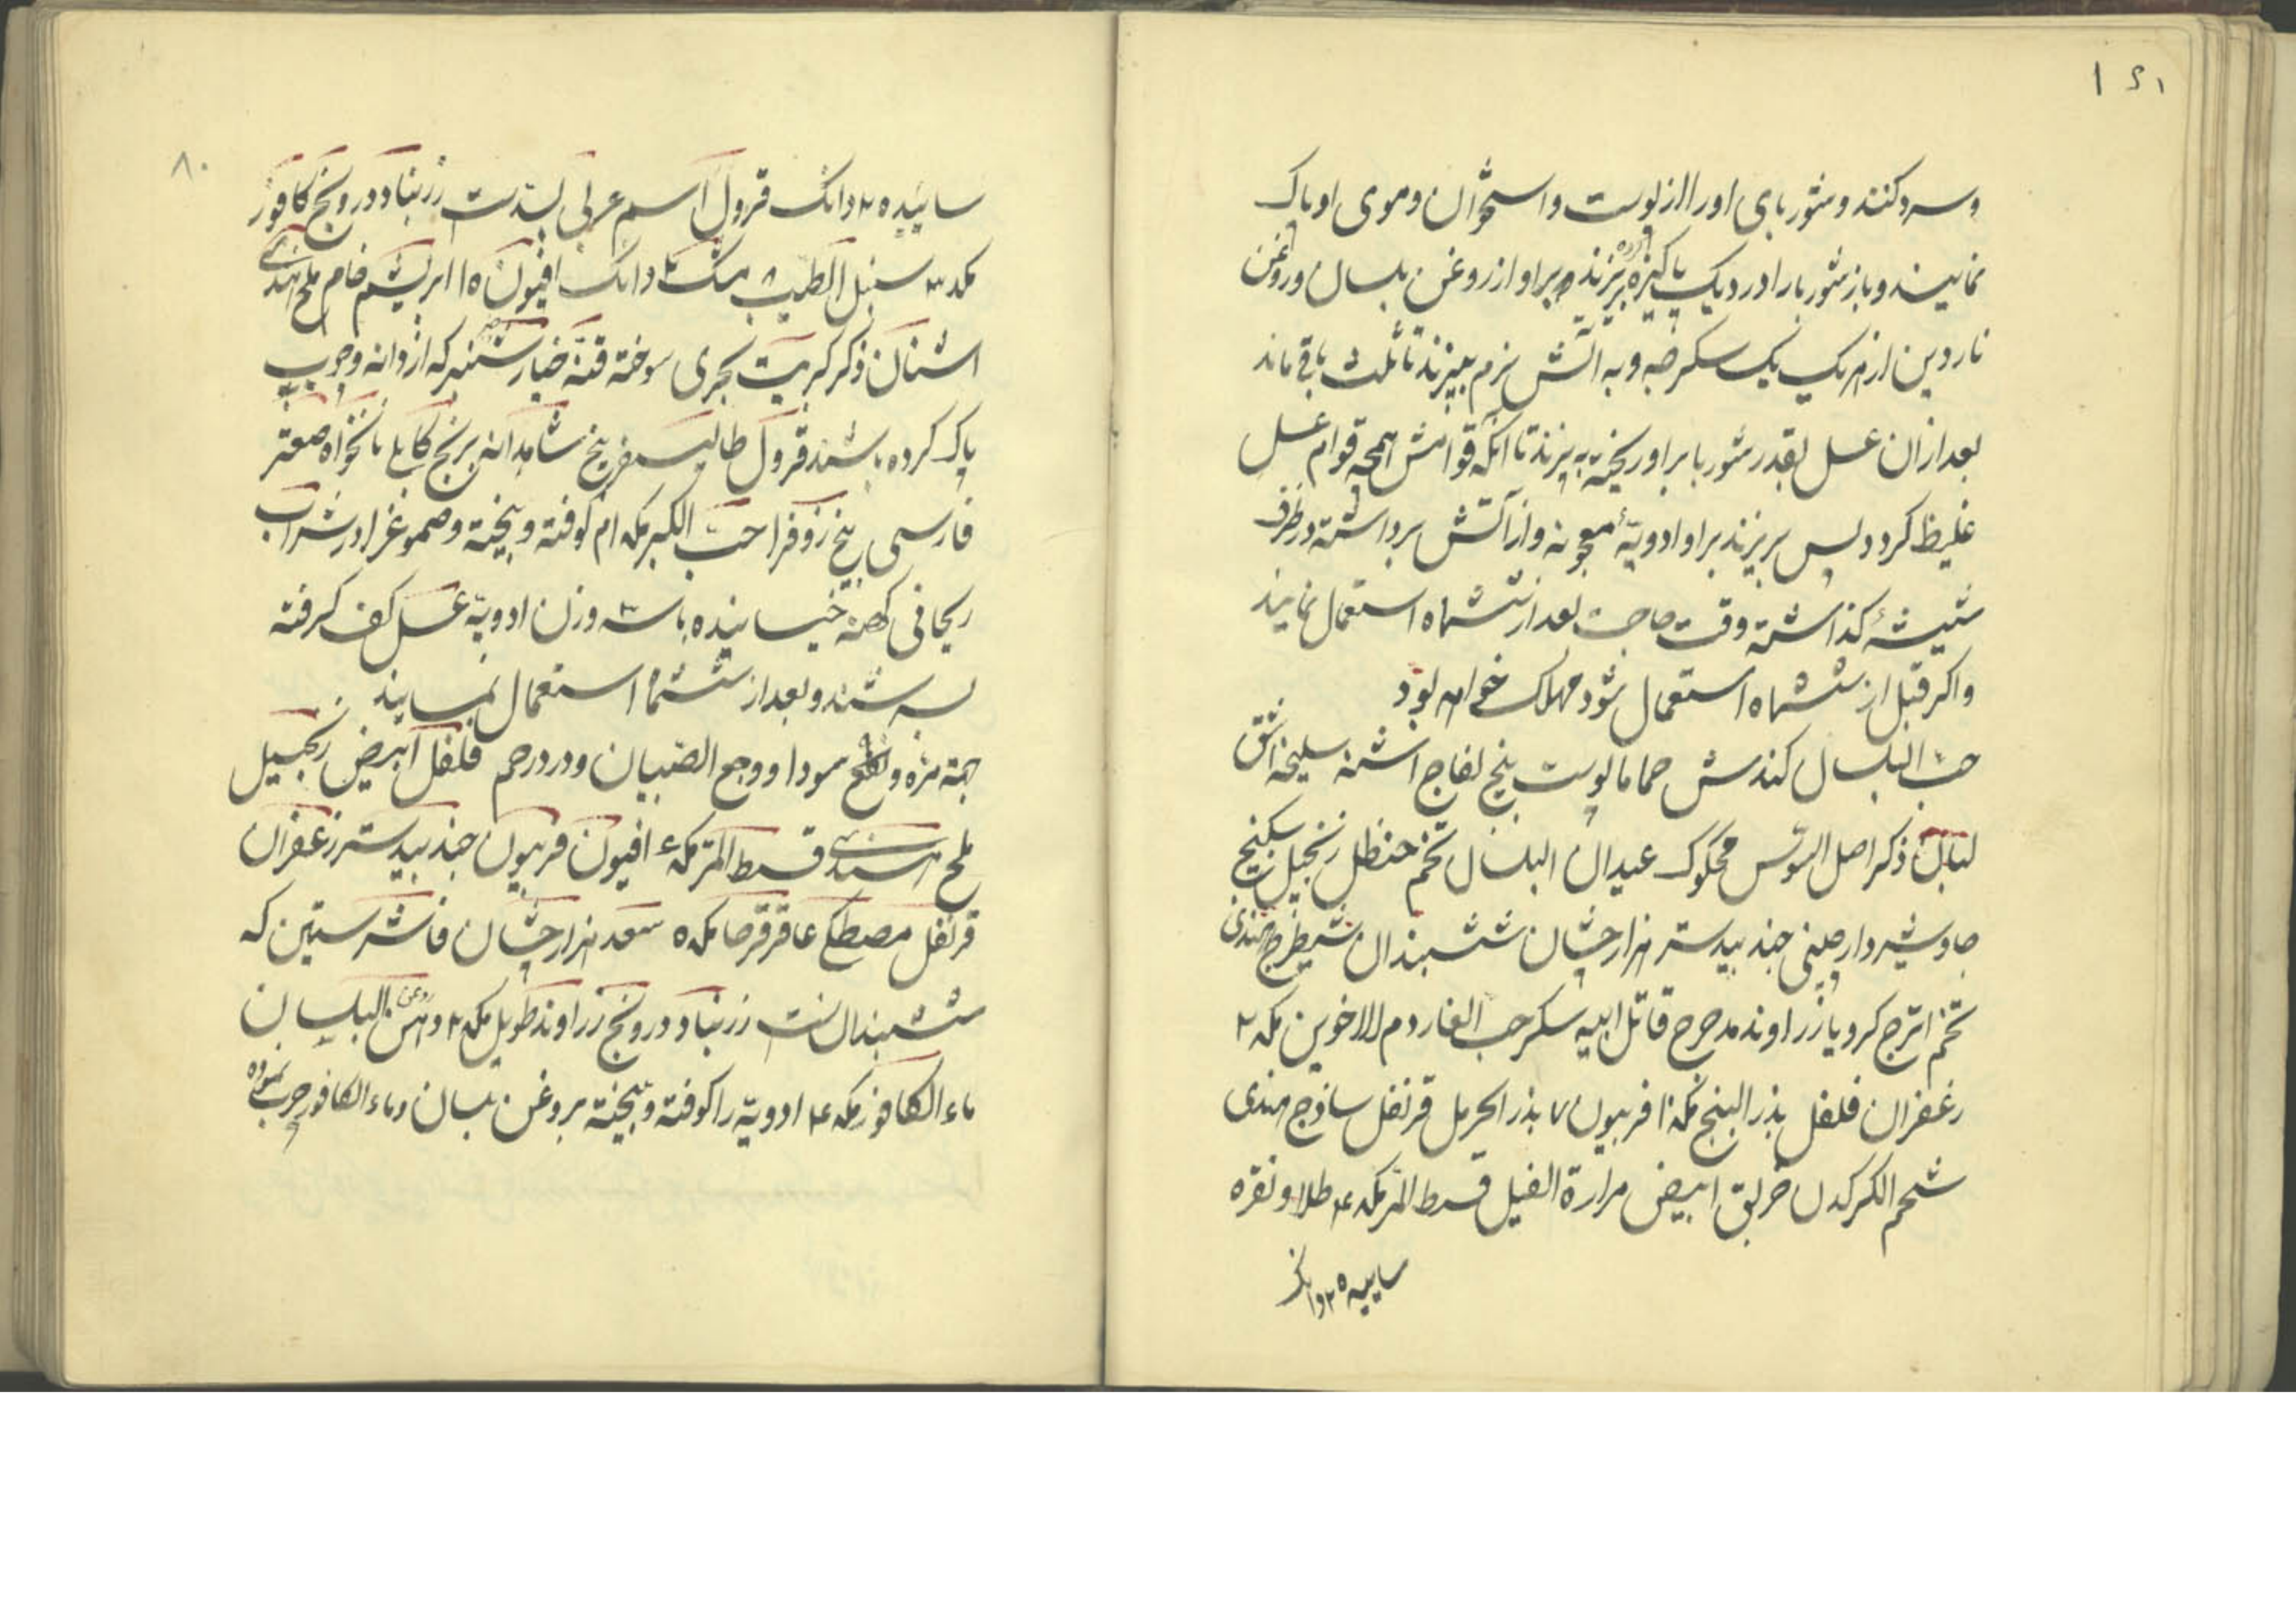 وسرد کنند و شوربای او را از پوست و استخوان و موی او پاک
نمایند و باز شوربا را در دیک پاکیزه بریزند و براو از روغن بلسان و روغن
ناردین از هریک یک سکرجه و به آتش نرم بپزند تا ثلث باقی ماند
بعد ازان عسل بقدر شوربا براو ریخته بپزند تا آنکه قوامش همچه قوام عسل
غلیظ کردد پس بریزند براو ادویهٔ معجونه و از آتش برداشته در ظرف
شیشهٔ کذاشته وقت حاجت بعد از ششماه استعمال نمایند
واکر قبل از ششماه استعمال شود مهلک خواهد بود
حب البلسان کندش حماما پوست بیخ لفاح اشنه سلیخه اشق
لبان ذکر اصل السوس محکوک عیدان البلسان تخم حنظل زنجبیل سکبینج
جاوشیر دارچینی جند بیدستر هزارجشان ششبندان شیطرج هندی
تخم اترج کرویا زراوند مدحرج قاتل ابیه سکر حب الغار دم الاخوین مکد ۲
زعفران فلفل بذر البنج مکد ۱۰ فربیون ۷ بذر الحرمل قرنفل ساذج هندی
شحم الکرکدن خربق ابیض مرارة الفیل قسط المر مکد ۴ طلا و نقره
ساییده ۲ دانک
۸۰
ساییده ۲ دانک قرول اسم عربی بسدست زرنباد درونج کافور
مکد ۳ سنبل الطیب مشک ۲ دانک افیون ۱۵ ابریشم خام ملح هندی
اشنان ذکر کبریت بحری سوخته قنه خیارشنبر که از دانه و چوب
پاک کرده باشند قرول طالیسفر بیخ شاهدانه برنج کابلی نانخواه صعتر
فارسی بیخ زوفرا حب الکبر مکد ام کوفته و بیخته و صموغ را در شراب
ریحانی کهنه خیسانیده با سه وزن ادویه عسل کف کرفته
بسرشند و بعد از ششماه استعمال نمایند
جهته مره و سودا و وجع الصبیان و درد رحم فلفل ابیض زنجبیل
ملح هندی قسط المر مکد ۴ افیون فربیون جند بیدستر زعفران
قرنفل مصطکی عاقرقرحا مکد ۵ سعد هزارجشان فاشرستین که
ششبندان است زرنباد درونج زراوند طویل مکد ۲ دهن البلسان
روغن
ماء الکافور مکد ۴ ادویه را کوفته و بیخته بروغن بلسان و ماء الکافور چرب نموده